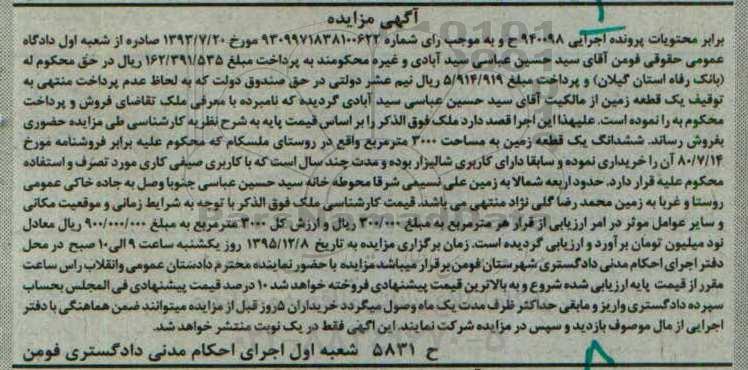 آگهی مزایده
برابر محتویات پرونده اجرایی ۹۴۰۰۹۸ ح و به موجب رای شماره ۹۳۰۹۹۷۱۸۳۸۱۰۰۶۲۲ مورخ ۱۳۹۳/۷/۲۰ صادره از شعبه اول دادگاه
عمومی حقوقی فومن آقای سید حسین عباسی سید آبادی و غیره محکومند به پرداخت مبلغ ۱۶۲/۳۹۱/۵۳۵ ریال در حق محکوم له
(بانک رفاه استان گیلان) و پرداخت مبلغ ۵/۹۱۴/۹۱۹ ریال نیم عشر دولتی در حق صندوق دولت که به لحاظ عدم پرداخت منتهی به
توقیف یک قطعه زمین از مالکیت آقای سید حسین عباسی سید آبادی گردیده که نامبرده با معرفی ملک تقاضای فروش و پرداخت
محکوم به را نموده است. علیهذا این اجرا قصد دارد ملک فوق الذکر را بر اساس قیمت پایه به شرح نظریه کارشناسی طی مزایده حضوری
بفروش رساند. ششدانگ یک قطعه زمین به مساحت ۳۰۰۰ مترمربع واقع در روستای ملسکام که محکوم علیه برابر فروشنامه مورخ
۸۰/۷/۱۴ آن را خریداری نموده و سابقا دارای کاربری شالیزار بوده و مدت چند سال است که با کاربری صیفی کاری مورد تصرف و استفاده
محکوم علیه قرار دارد. حدود اربعه شمالا به زمین علی نسیمی شرقا محوطه خانه سید حسین عباسی جنوبا وصل به جاده خاکی عمومی
روستا و غربا به زمین محمد رضا گلی نژاد منتهی می باشد. قیمت کارشناسی ملک فوق الذکر با توجه به شرایط زمانی و موقعیت مکانی
و سایر عوامل موثر در امر ارزیابی از قرار هر مترمربع به مبلغ ۳۰۰/۰۰۰ ریال و ارزش کل ۳۰۰۰ مترمربع به مبلغ ۹۰۰/۰۰۰/۰۰۰ ریال معادل
نود میلیون تومان برآورد و ارزیابی گردیده است. زمان برگزاری مزایده به تاریخ ۱۳۹۵/۱۲/۸ روز یکشنبه ساعت ۹ الی ۱۰ صبح در محل
دفتر اجرای احکام مدنی دادگستری شهرستان فومن برقرار میباشد مزایده با حضور نماینده محترم دادستان عمومی وانقلاب راس ساعت
مقرر از قیمت پایه ارزیابی شده شروع و به بالاترین قیمت پیشنهادی فروخته خواهد شد ۱۰ درصد قیمت پیشنهادی فی المجلس بحساب
سپرده دادگستری واریز و مابقی حداکثر ظرف مدت یک ماه وصول میگردد خریداران ۵روز قبل از مزایده میتوانند ضمن هماهنگی با دفتر
اجرایی از مال موصوف بازدید و سپس در مزایده شرکت نمایند. این اگهی فقط در یک نوبت منتشر خواهد شد.
ح ۵۸۳۱ شعبه اول اجرای احکام مدنی دادگستری فومن